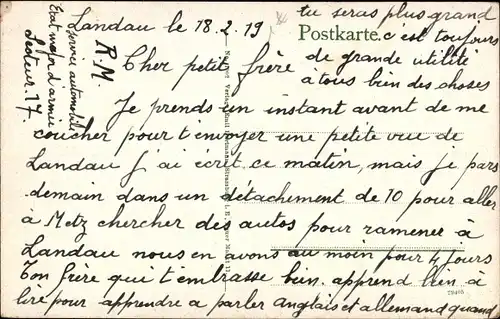 Landau le 18.2.19
tu seras plus grand
Postkarte.
c'est toujours
de grande utilité
à tous bien des choses
R.M.
service automobile
Etat major d'armée
Secteur 17.
Cher petit frère
Je prends un instant avant de me
coucher pour t'envoyer une petite vue de
Landau j'ai écrit ce matin, mais je pars
demain dans un détachement de 10 pour aller
à Metz chercher des autos pour ramener à
Landau nous en avons au moin pour 4 jours
Ton frère qui t'embrasse bien. apprend bien à
lire pour apprendre a parler anglais et allemand quand